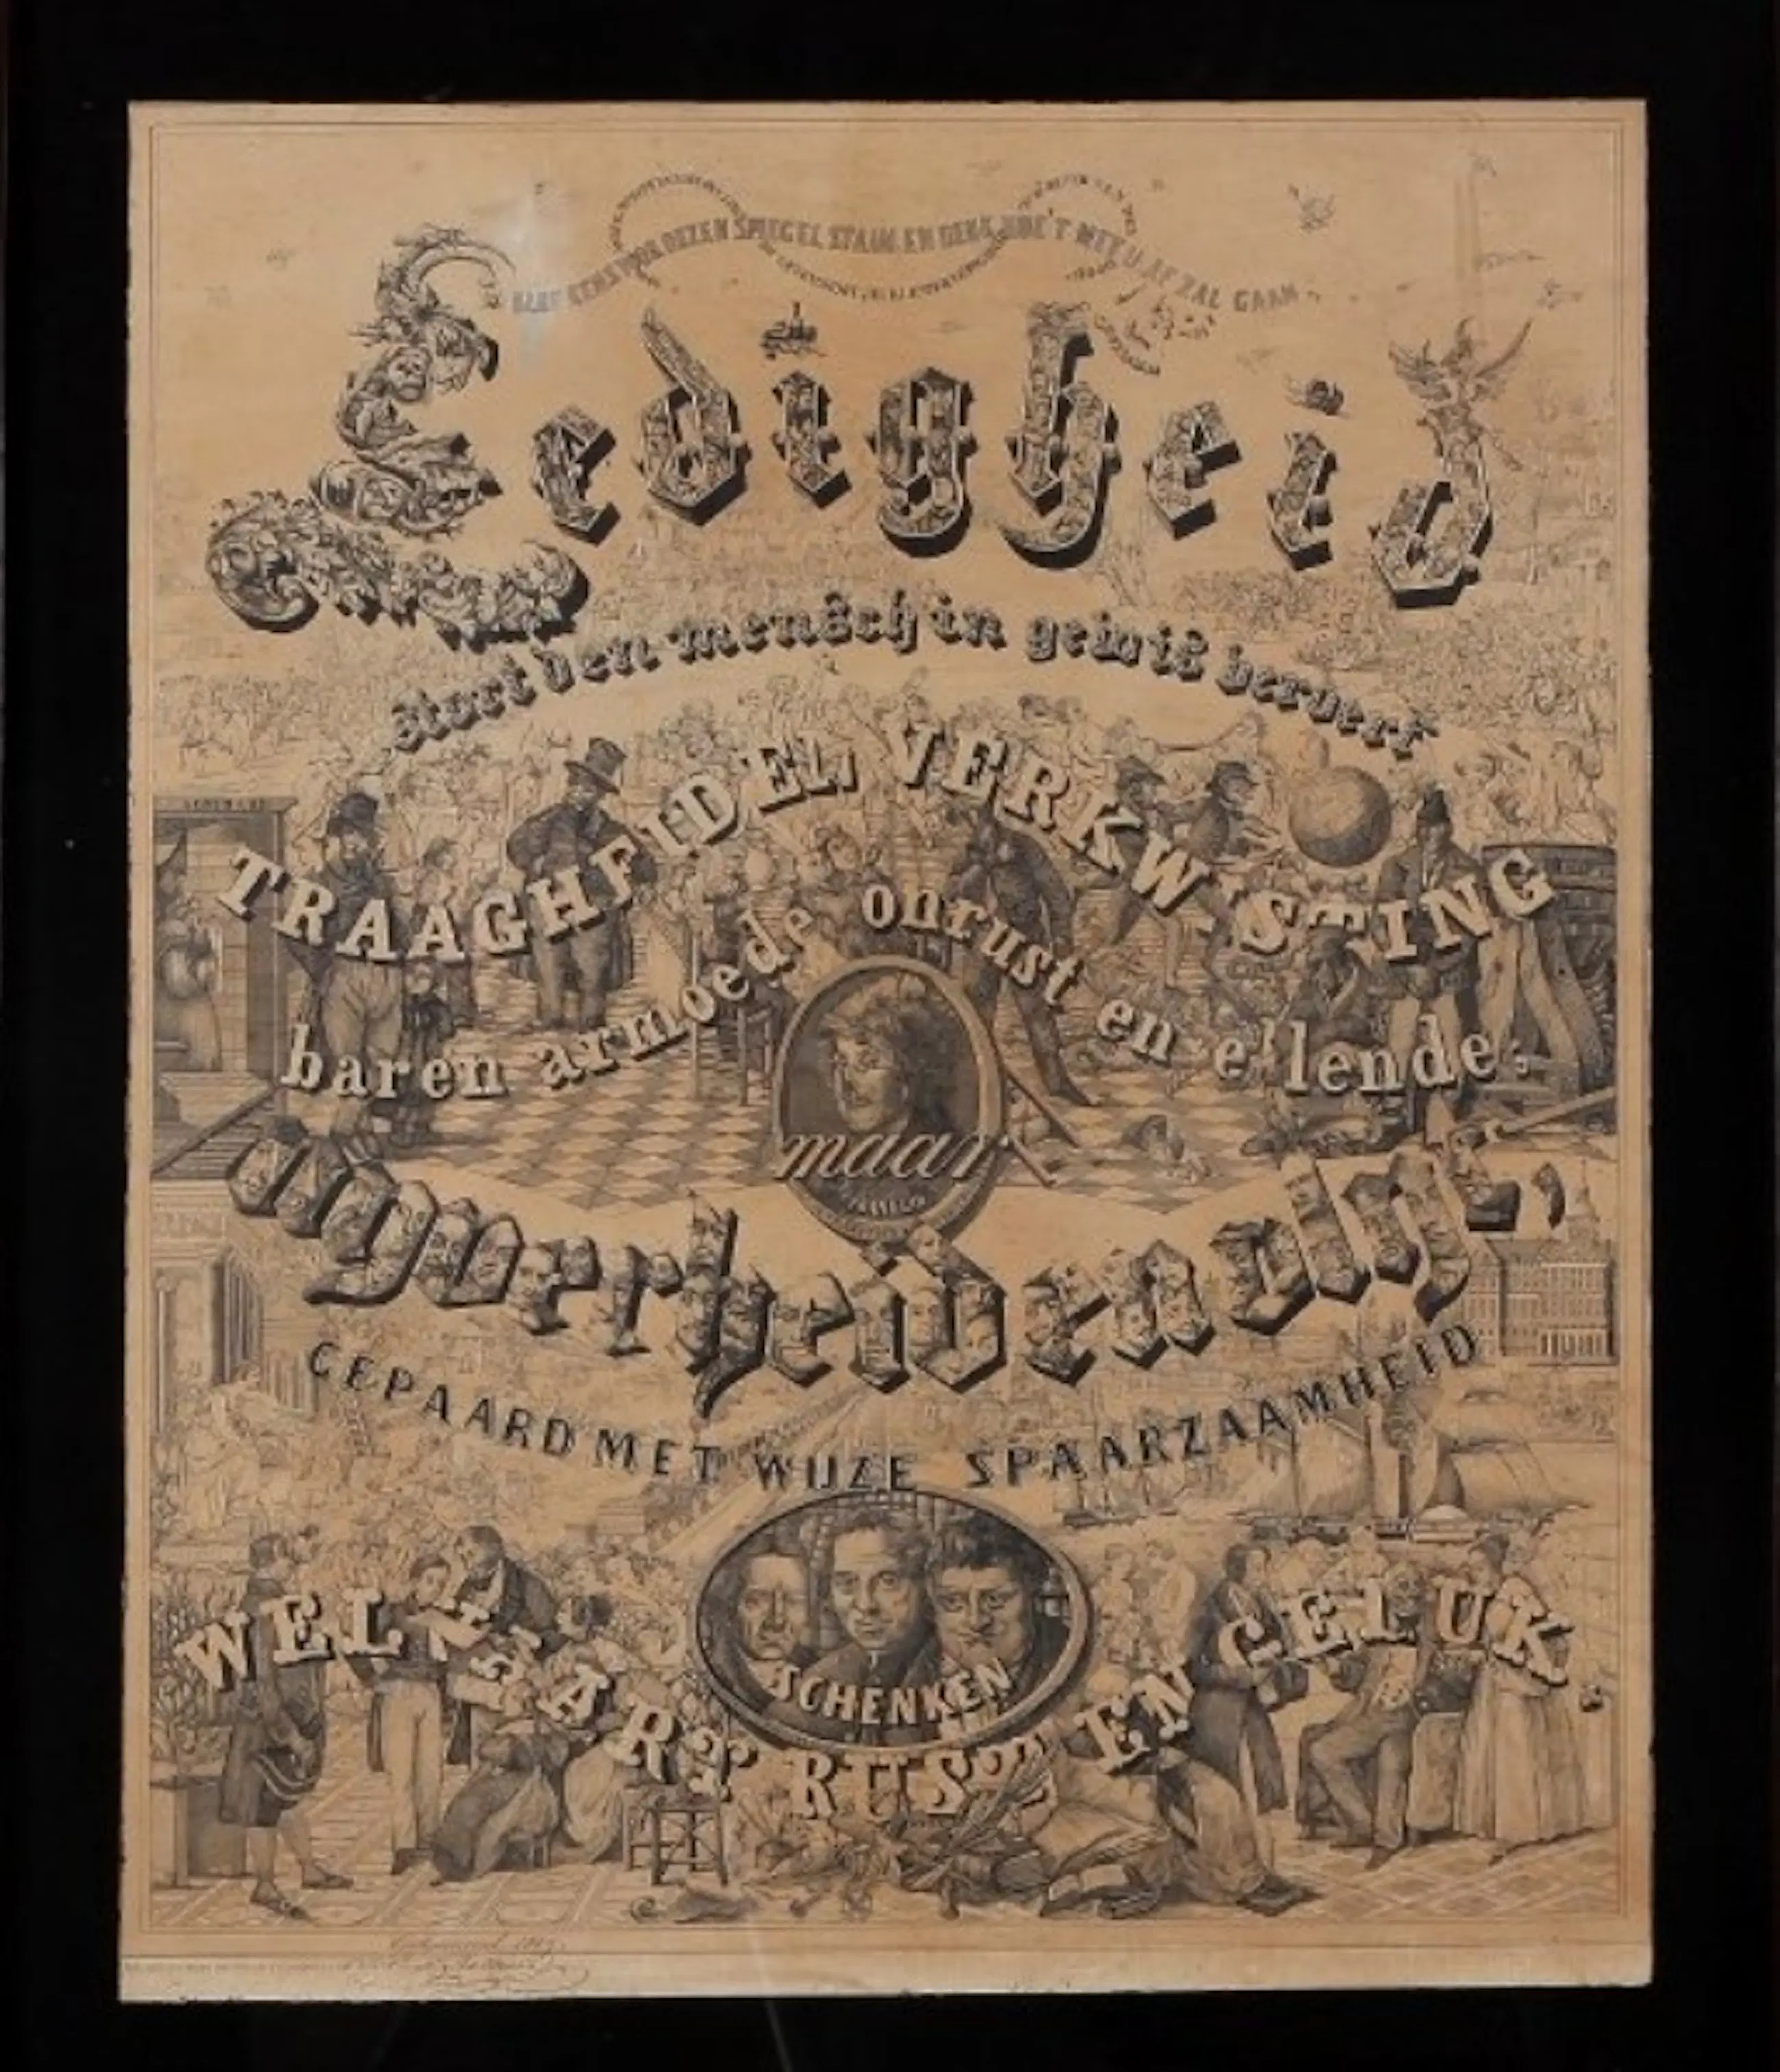 BLIJF EENS VOOR DEZEN SPIEGEL STAAN. EN DENK HOE'T MET U AF ZAL GAAN
Ledigheid
stort den mensch in gewis verderf
TRAAGHEID EN VERKWISTING
baren armoede onrust en ellende;
maar
Nyverheid en vlijt,
GEPAARD MET WIJZE SPAARZAAMHEID
SCHENKEN
WELVAART RUST EN GELUK.